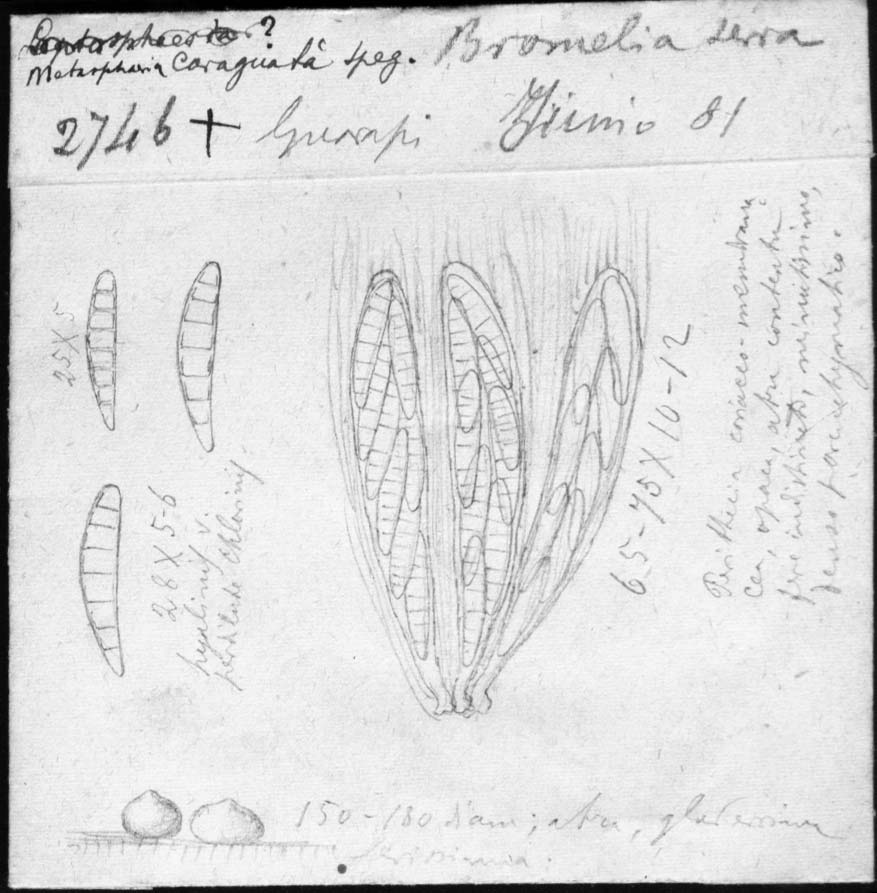 Leptosphaeria ?
Metasphaeria Caraguatá Speg. Bromelia serra
2746 + Guarapi Junio 81
25 X 5
28 X 5-6
hyalinis v.
perdilute chlorinis
65-75 X 10-12
Perithecia coriaceo-membrana
cea, opaca, atra contextu
fere indistincto, minutissimo,
denso parenchymatico.
150-180 diam; atra, glaberrima